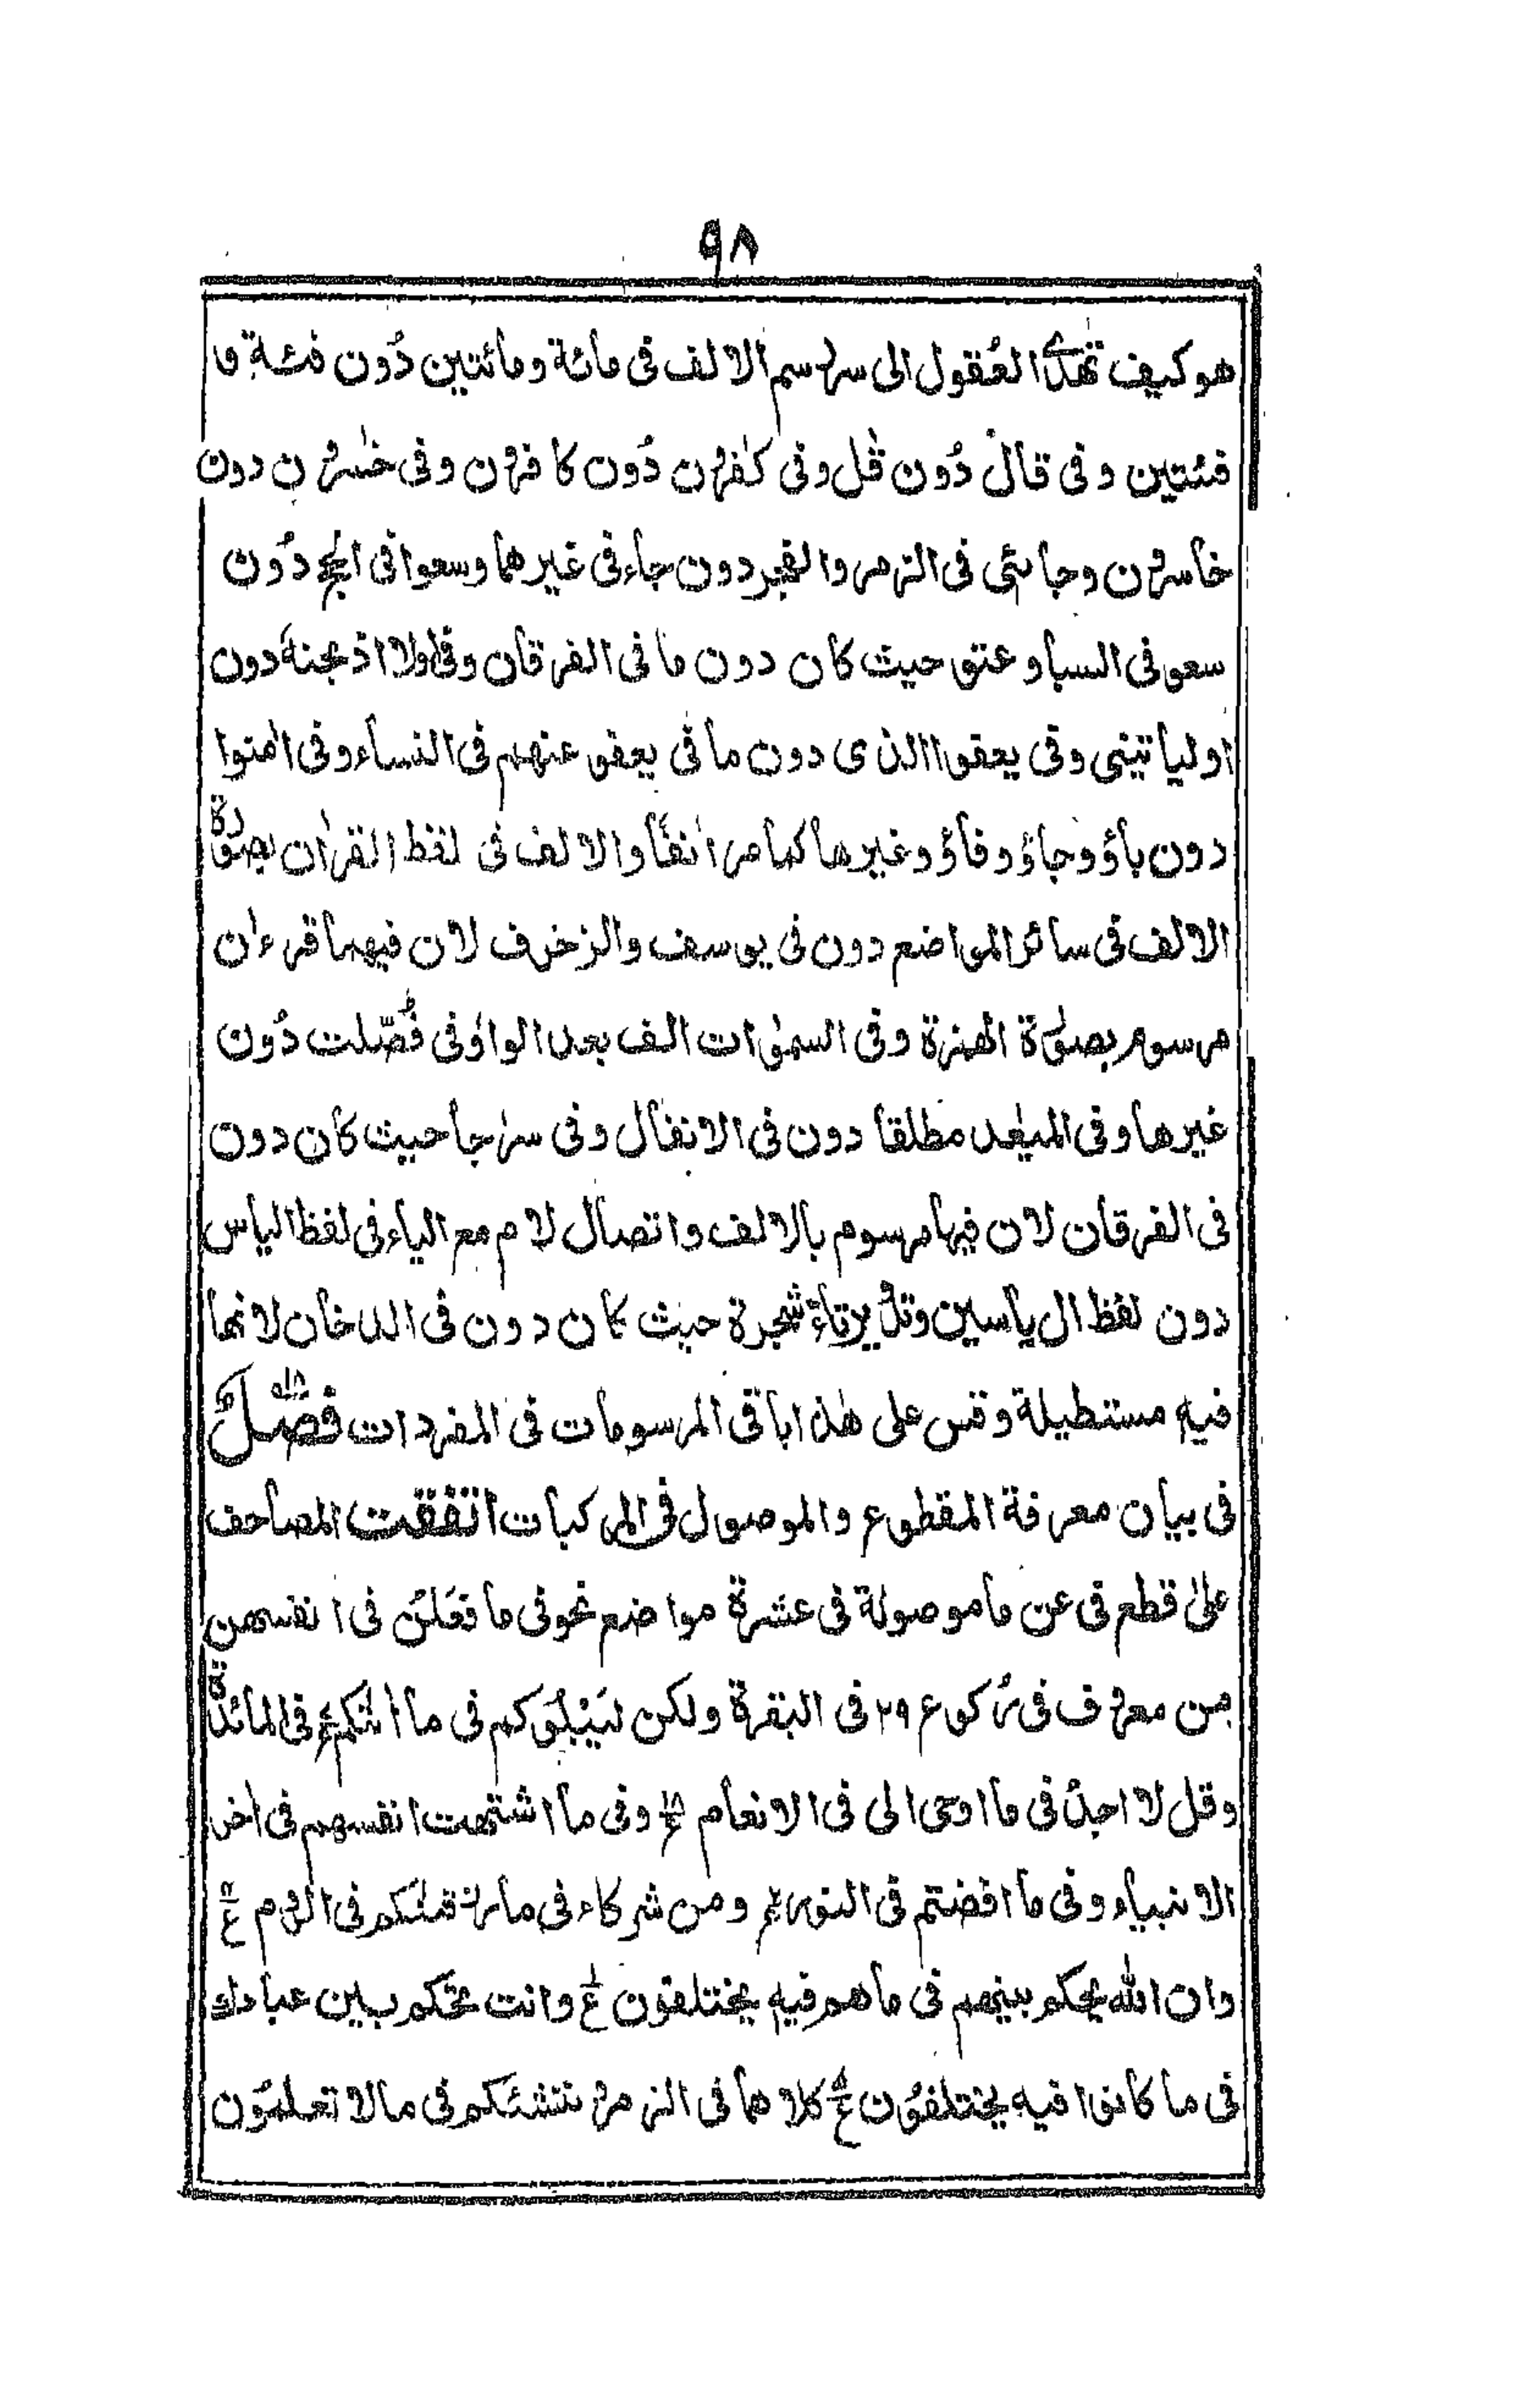 ٩٨
هو كيف تهدے العُقول الى سر رسم الالف فى مائة ومائتين دُون فئة و
فئتين و فى قال دُون قٰل و فى كٰفرون دُون كافرون و فى خٰسرون دون
خاسرون وجائى فى الزمر والفجر دون جاء فى غيرهما وسعوا فى الحج دُون
سعو فى السبا و عتو حيث كان دون ما فى الفرقان و فى اولا اذبحنه دون
اوليا تينى وفى يعفوا الذى دون ما فى يعفو عنهم فى النساء و فى اٰمنوا
دون باؤ وجاؤ وفاؤ وغيرها كما مر اٰنفًا والالف فى لفظ القراٰن بصورة
الالف فى سائر المواضع دون فى يوسف والزخرف لان فيهما قرءٰن
مرسوم بصورة الهمزة وفى السمٰوات الف بعد الواو فى فُصّلت دُون
غيرها و فى الميعٰد مطلقا دون فى الانفال و فى سرٰجا حيث كان دون
فى الفرقان لان فيها مرسوم بالالف واتصال لام مع الياء فى لفظ الياس
دون لفظ ال ياسين وتدوير تاء شجرة حيث كان دون فى الدخان لانها
فيه مستطيلة وقس على هٰذا باقى المرسومات فى المفردات فصل
فى بيان معرفة المقطوع والموصول فى المركبات اتفقت المصاحف
علىٰ قطع فى عن ما موصولة فى عشرة مواضع نحو فى ما فَعَلن فى انفسهن
من معروف فى ركوع ٢٩ فى البقرة ولكن ليَبْلُوَكم فى ما اٰتٰكم فى المائدة
وقل لا اجد فى ما اوحى الى فى الانعام و فى ما اشتهت انفسهم فى اخر
الانبياء و فى ما افضتم فى النور و من شركاء فى ما رزقنٰكم فى الروم
وان الله يحكم بينهم فى ما هم فيه يختلفون وانت تحكم بين عبادك
فى ما كانوا فيه يختلفون كلاهما فى الزمر و ننشئكم فى ما لا تعلمون